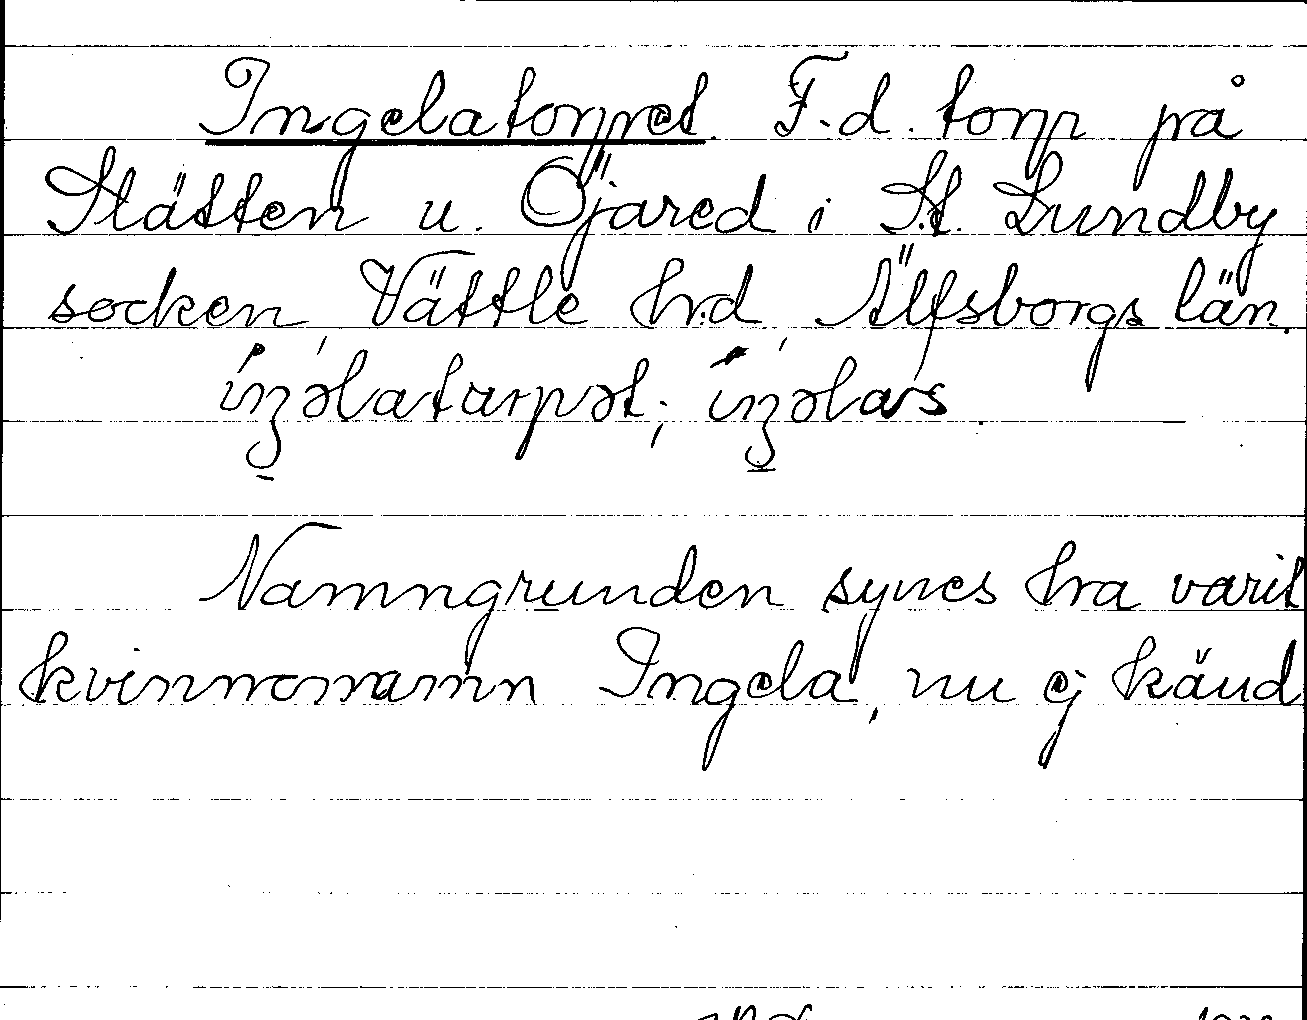 Ingelatorpet. F.d. torp på
Slätten u. Öjared i St. Lundby
socken, Vättle hrd, Älfsborgs län.
iŋəlatarpət; iŋəlas.
Namngrunden synes ha varit
kvinnonamn Ingela, nu ej känd